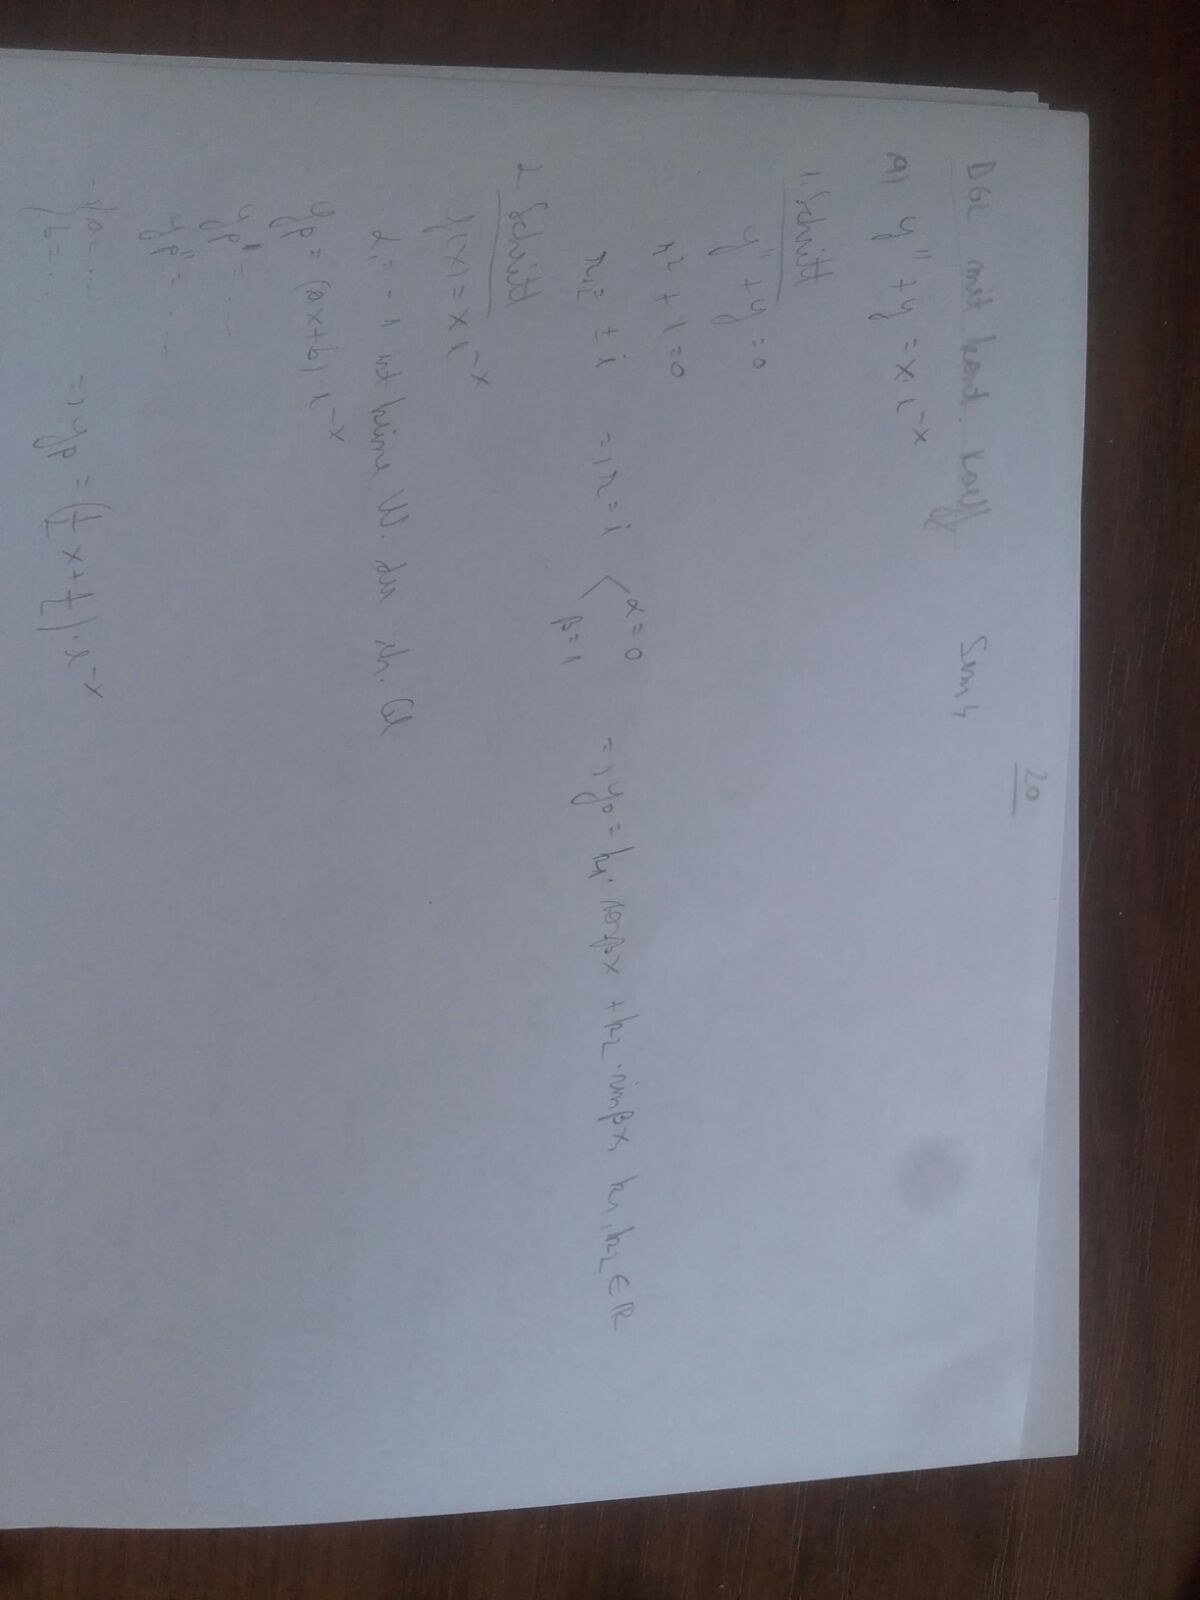 20
DGL mit konst. Koeff Sem 4
a) y'' + y = x · e^-x
1. Schritt
y'' + y = 0
r² + 1 = 0
r₁,₂ = ± i => r = i < α = 0 β = 1 => y₀ = k₁ · cos βx + k₂ · sin βx, k₁, k₂ ∈ ℝ
2. Schritt
f(x) = x e^-x
α₁ = -1 ist keine W. der ch. Gl
yp = (ax+b) · e^-x
yp' = ....
yp'' = ....
=> { a = ... b = ... => yp = (1/2 x + 1/2) · e^-x